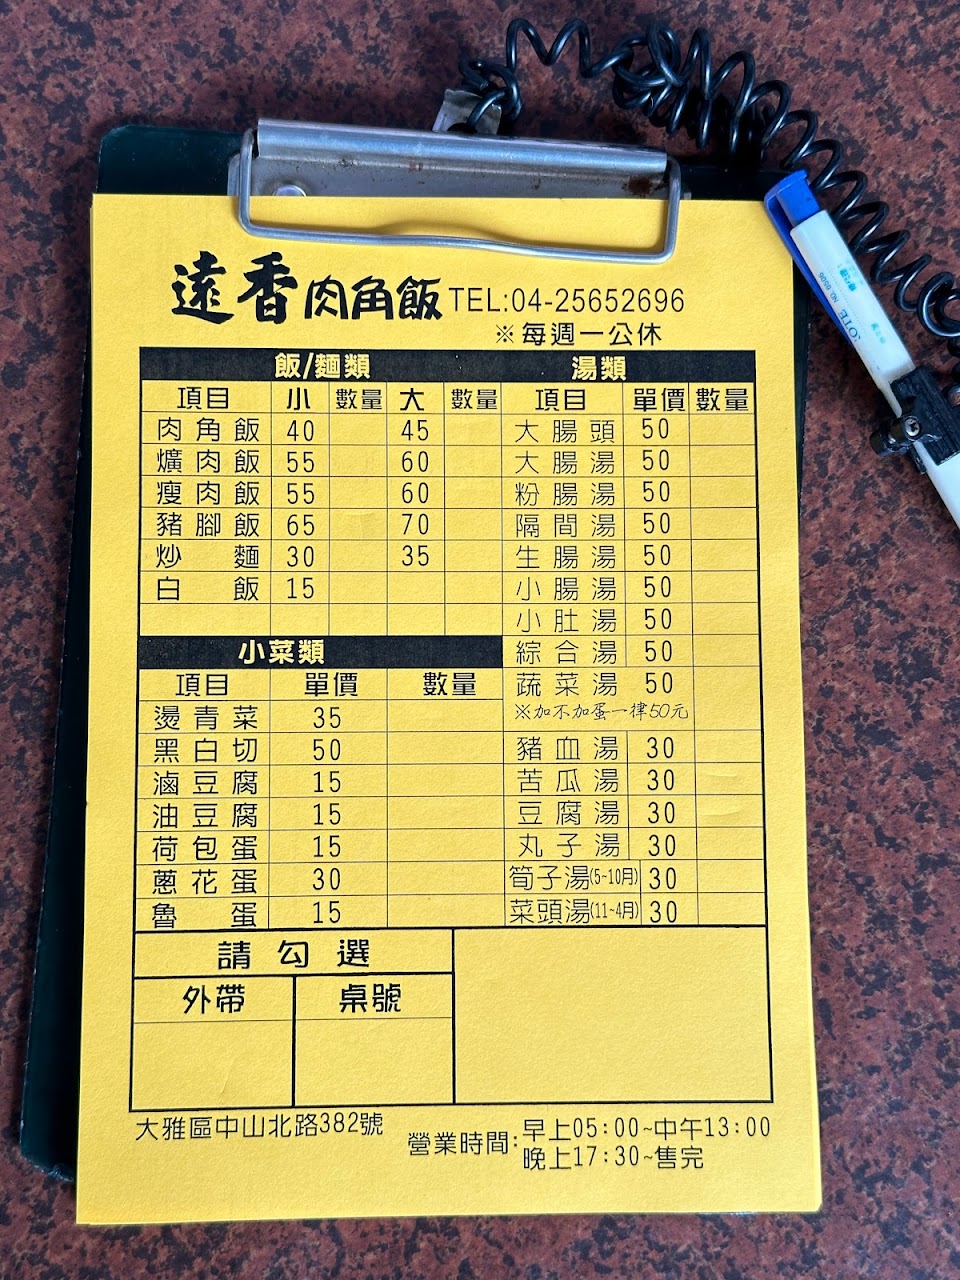 遠香肉角飯 TEL:04-25652696
※每週一公休
飯/麵類
項目 小 數量 大 數量
肉角飯 40 45
爌肉飯 55 60
瘦肉飯 55 60
豬腳飯 65 70
炒麵 30 35
白飯 15
小菜類
項目 單價 數量
燙青菜 35
黑白切 50
滷豆腐 15
油豆腐 15
荷包蛋 15
蔥花蛋 30
魯蛋 15
湯類
項目 單價 數量
大腸頭 50
大腸湯 50
粉腸湯 50
隔間湯 50
生腸湯 50
小腸湯 50
小肚湯 50
綜合湯 50
蔬菜湯 50
※加不加蛋一律50元
豬血湯 30
苦瓜湯 30
豆腐湯 30
丸子湯 30
筍子湯(5~10月) 30
菜頭湯(11~4月) 30
請勾選
外帶 桌號
大雅區中山北路382號
營業時間:早上05:00~中午13:00
晚上17:30~售完